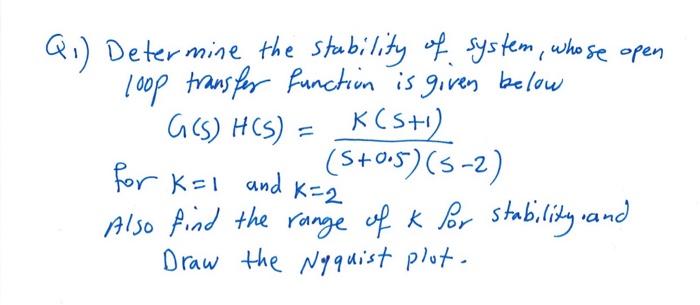 Q1) Determine the stability of system, whose open
loop transfer function is given below
G(s) H(s) = K(s+1)
(s+0.5)(s-2)
for K=1 and K=2
Also find the range of K for stability and
Draw the Nyquist plot.